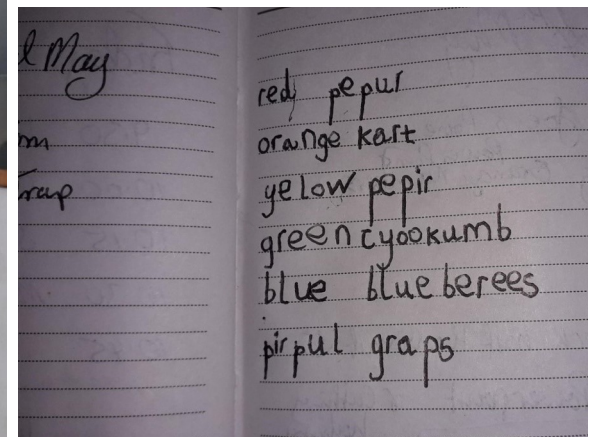 May
red pepur
orange kart
yelow pepir
green cyookumb
blue blueberees
pirpul graps